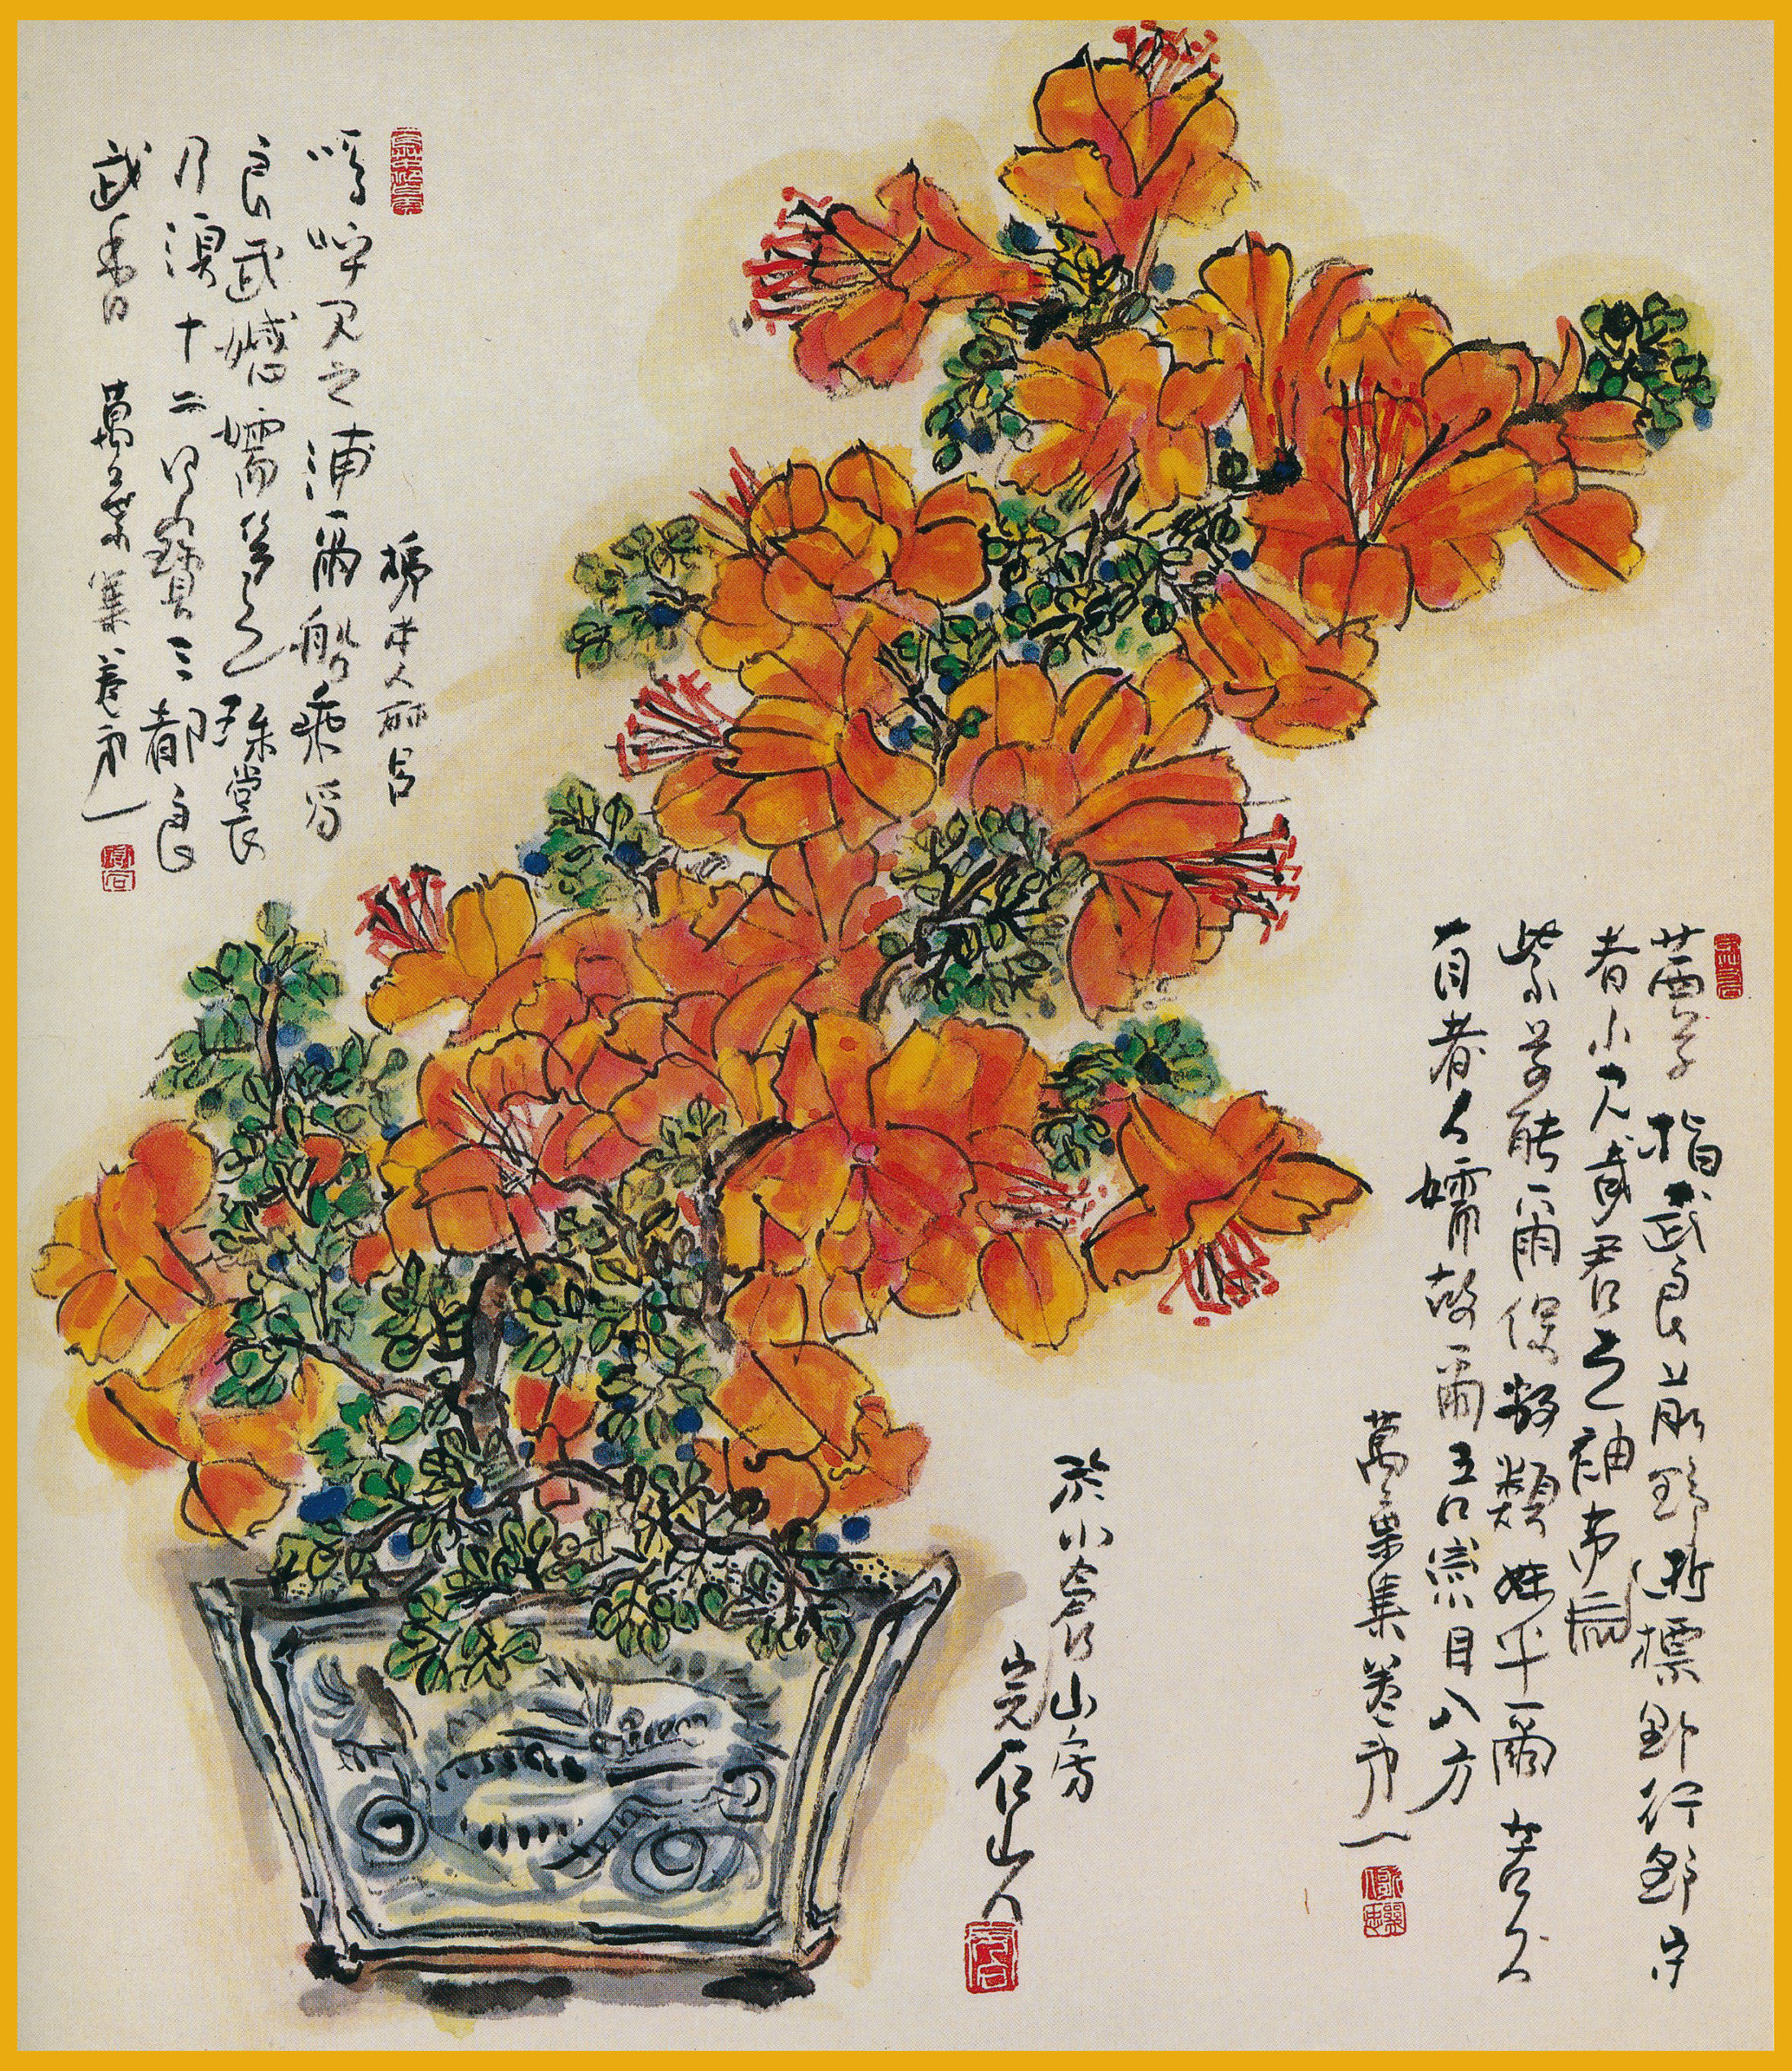 茜草指武良前野逝標野行野守
者不見哉君之袖布流
紫草能爾保敝類妹乎爾苦久
有者人嬬故爾吾戀目八方
萬葉集卷第一
於小倉山房
完石山人
柿本人麻呂
嗚呼見之浦爾船乘爲
良武嬬等之珠裳
乃須十二四寶三都良
武香 萬葉集卷第一